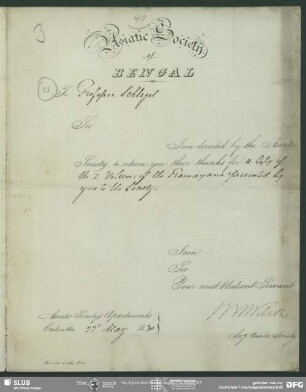 3
40
Asiatic Society
of
BENGAL
To Professor Schlegel
Sir
I am directed by the Asiatic
Society to return you their thanks for a Copy of
the 2 Volume of the Ramayana presented by
you to the Society.
I am
Sir
Your most obedient Servant
Asiatic Society's Apartments
Calcutta 22 May 1830
Secy Asiatic Society
SLUB
DFG